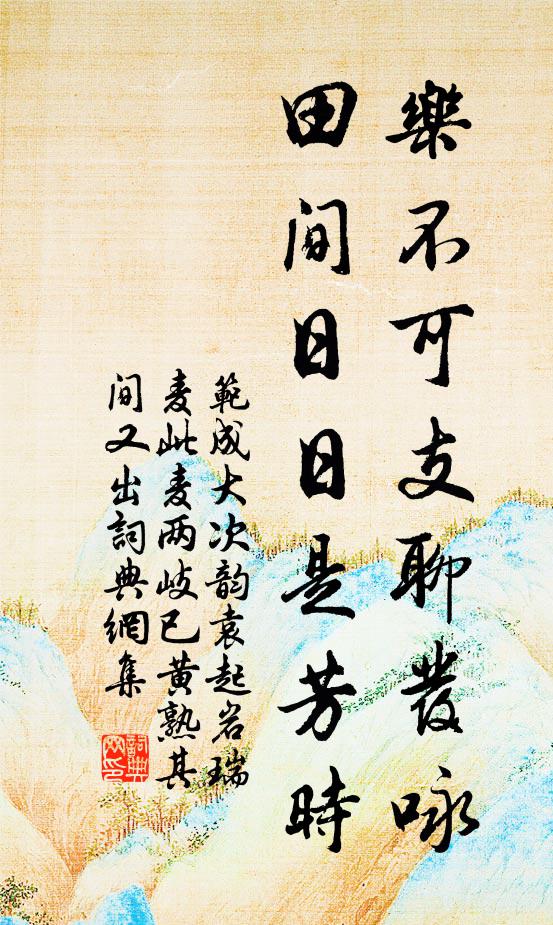 樂不可支聊發咏
田间日日是芳時
範成大次韵袁起岩瑞
麦此麦两岐已黄熟其
间又出詞典網集
詞典
网印